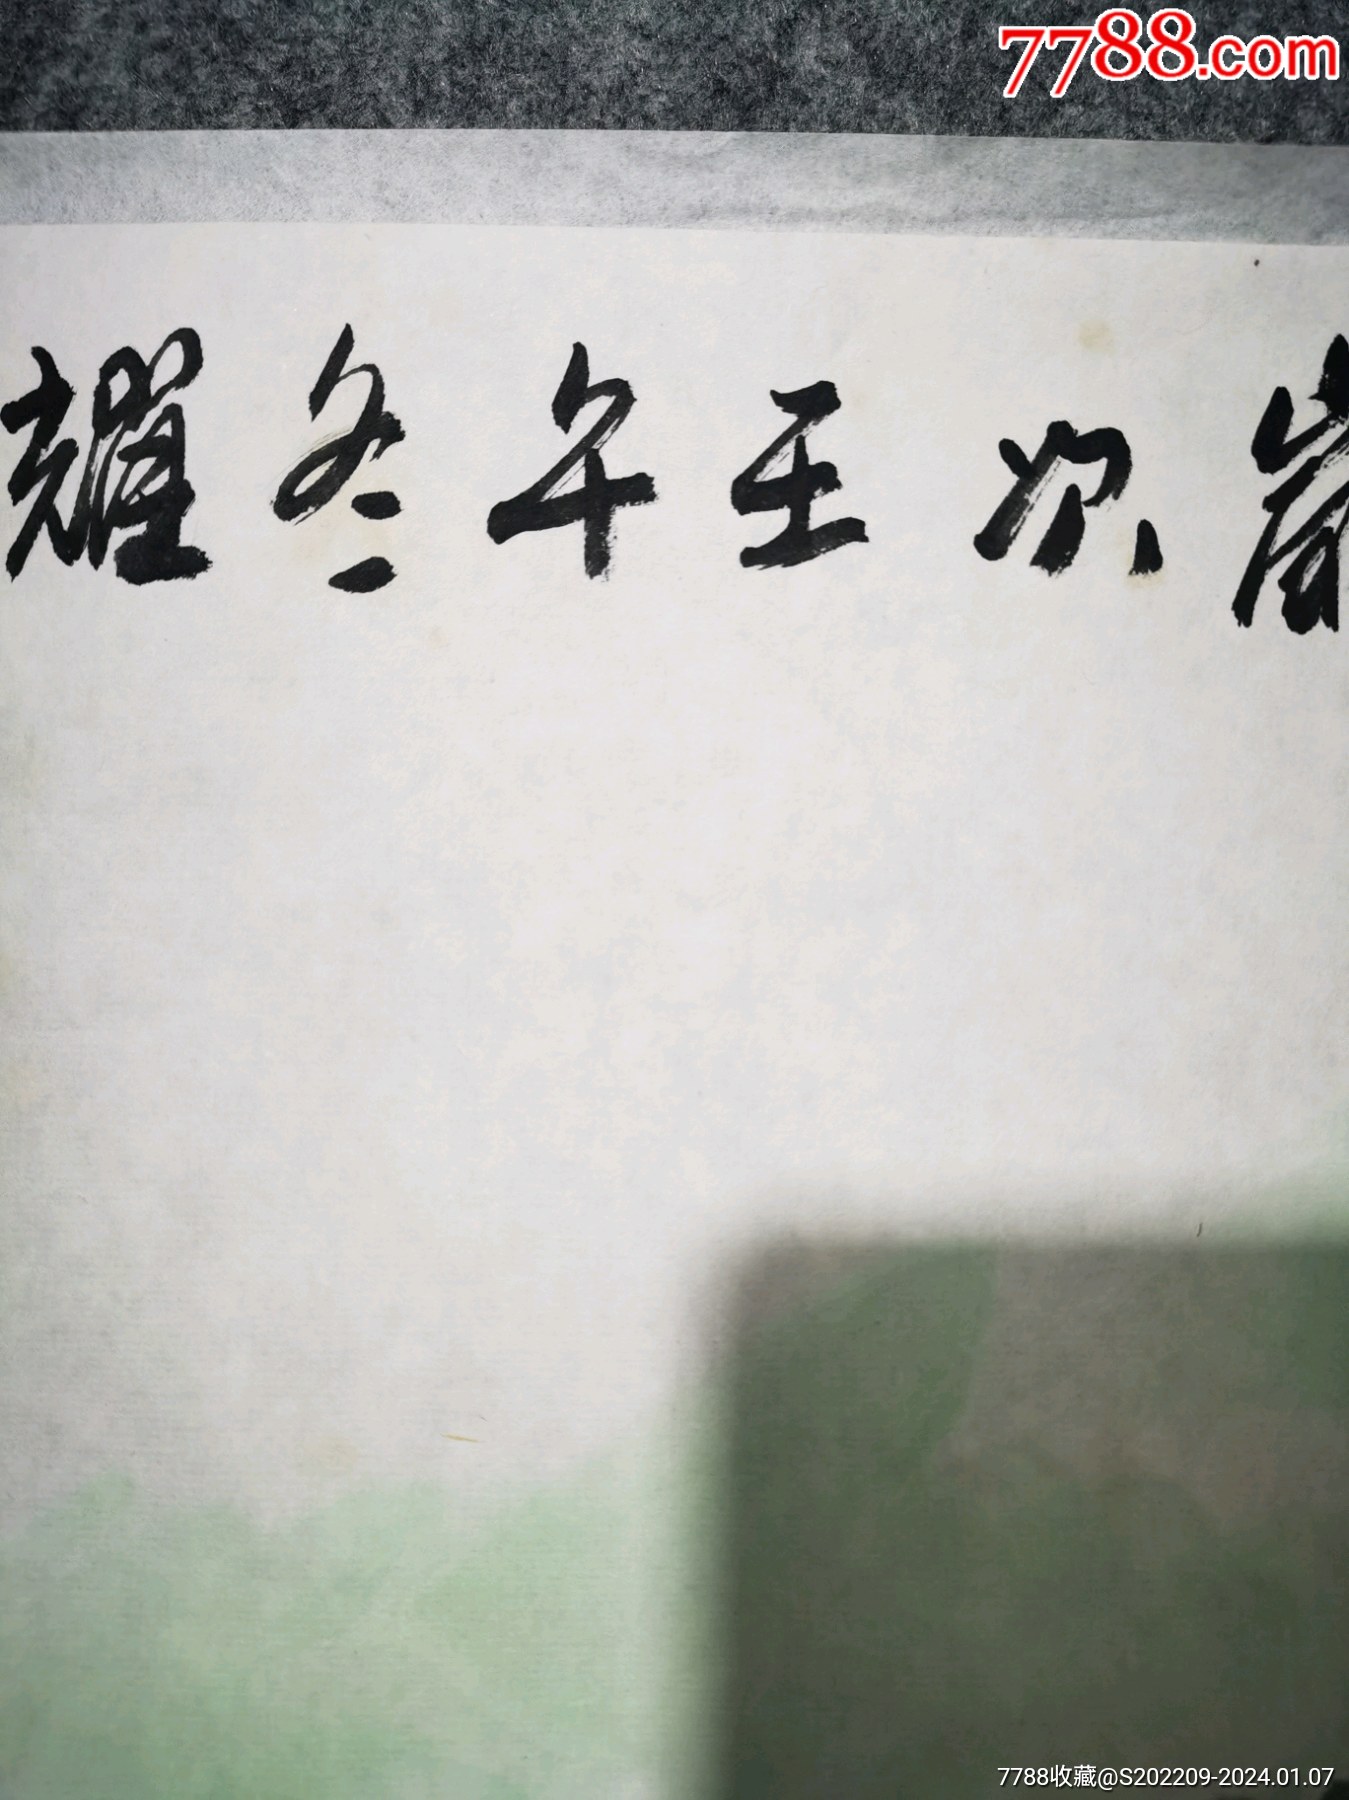 7788.com
歲次壬午冬耀
7788收藏@S202209-2024.01.07